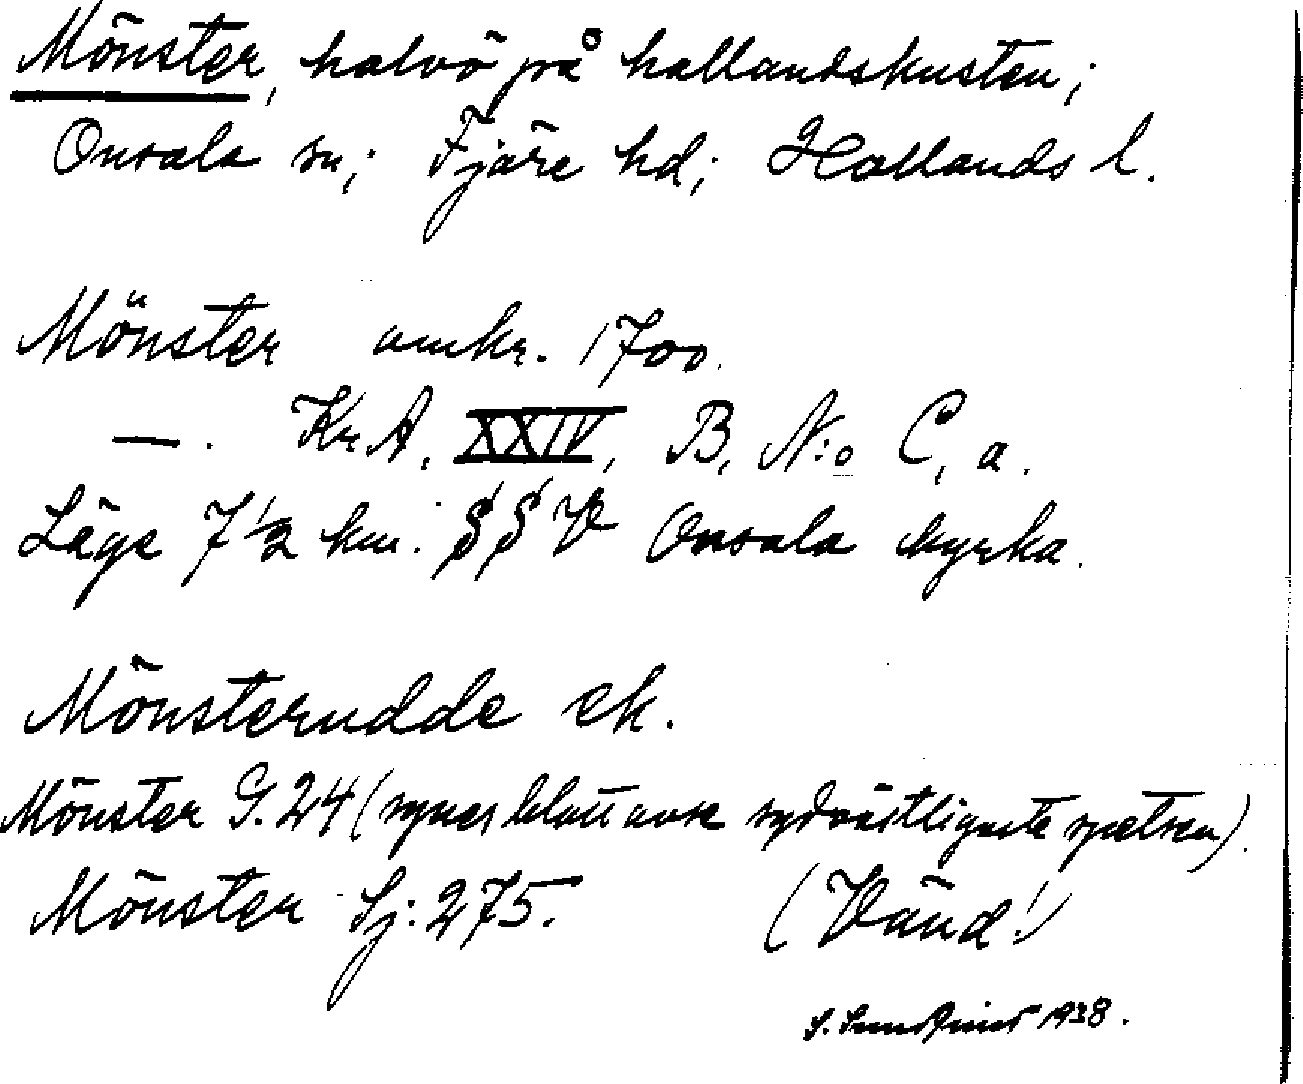 Mönster, halvö på hallandskusten;
Onsala sn; Fjäre hd; Hallands l.
Mönster omkr. 1700.
—. Kr.A, XXIV, B, N:o C, a.
Läge 7 1/2 km. SSV Onsala kyrka.
Mönsterudde ek.
Mönster G. 24 (synes blott avse sydvästligaste spetsen).
Mönster Sj: 275. (Vänd!)
1938.